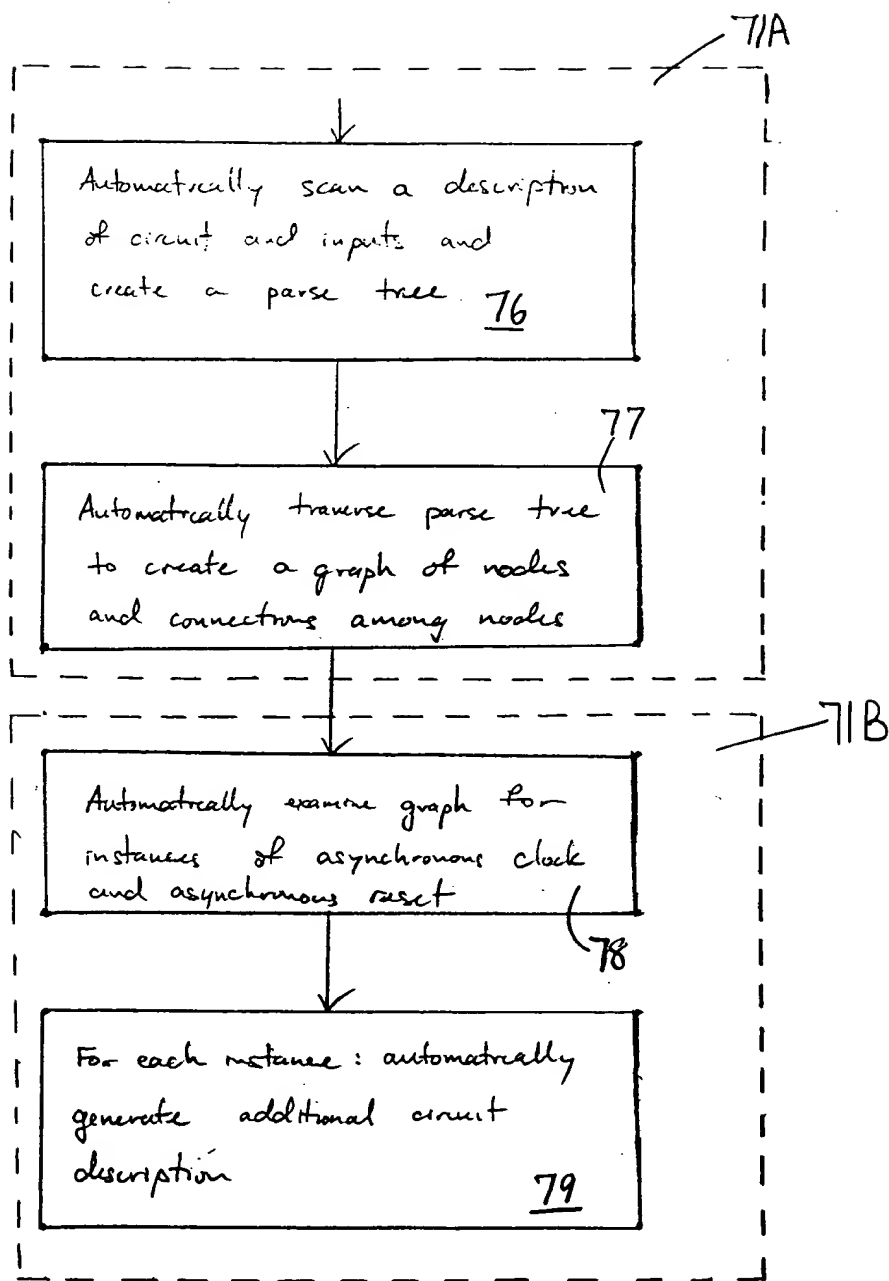 71A
Automatically scan a description
of circuit and inputs and
create a parse tree. 76
77
Automatically traverse parse tree
to create a graph of nodes
and connections among nodes
71B
Automatically examine graph for
instances of asynchronous clock
and asynchronous reset
78
For each instance: automatically
generate additional circuit
description
79